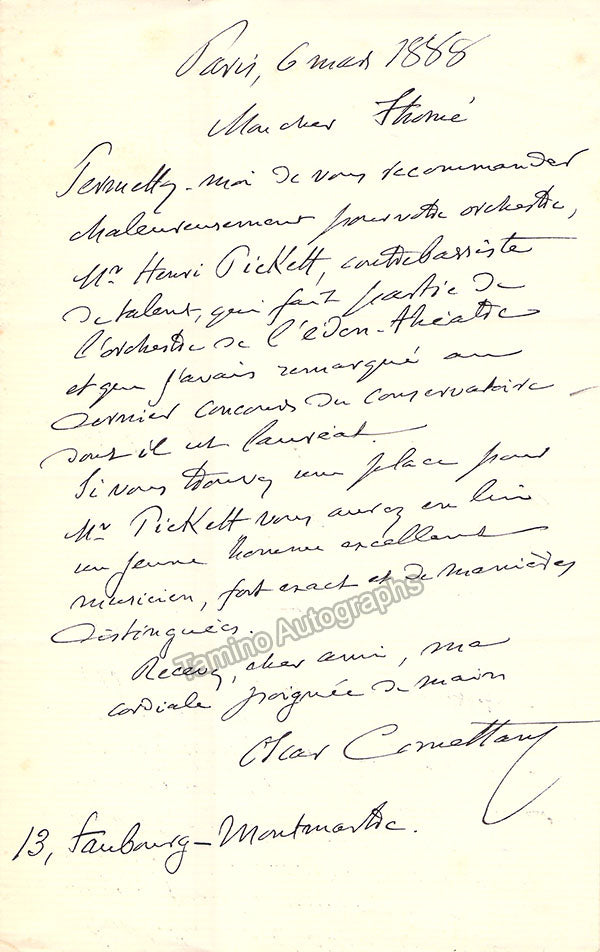 Paris, 6 mars 1888
Mon cher Thomé
Permettez-moi de vous recommander
chaleureusement pour votre orchestre,
Mr Henri Pickett, contrebassiste
de talent, qui fait partie de
l'orchestre de l'éden-théatre
et que j'avais remarqué au
dernier concours du conservatoire
dont il est lauréat.
Si vous trouvez une place pour
Mr Pickett vous aurez en lui
un jeune homme excellent
musicien, fort exact et de manières
distinguées.
Recevez, cher ami, ma
cordiale poignée de main
Oscar Comettant
13, Faubourg-Montmartre.
Tamino Autographs